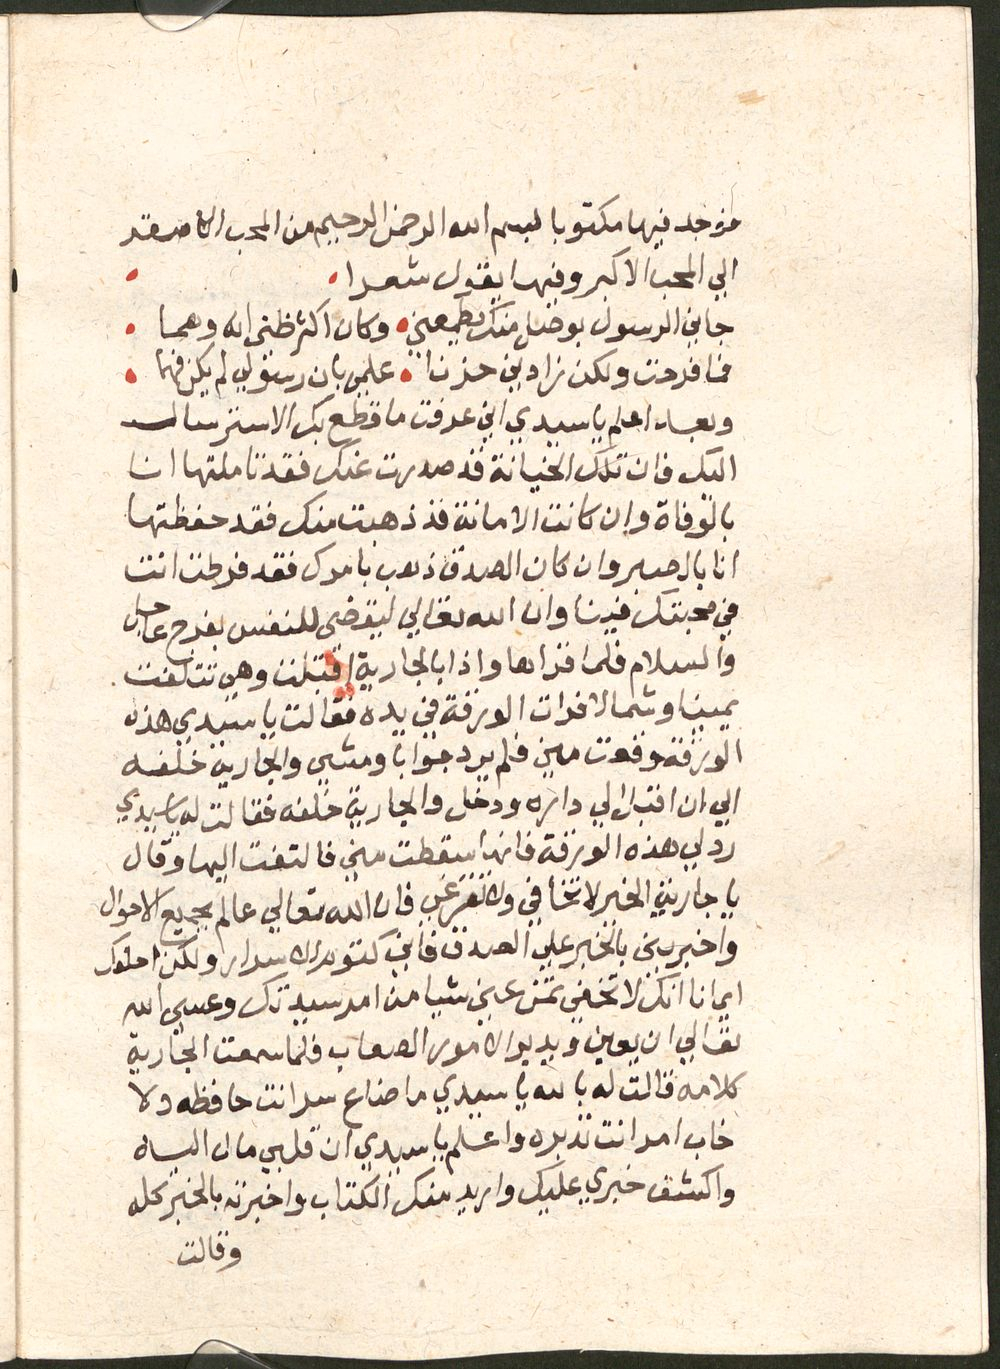 فوجد فيها مكتوبا لبسم الله الرحمن الرحيم من المحب الاصغر
الي المحب الاكبر وفيها يقول شعرا
جاني الرسول بوصل منك يطمعني وكان اكثر ظني انه وهما
فما فرحت ولكن زادني حزنا علمي بان رسولي لم يكن فهما
وبعد اعلم يا سيدي اني عرفت ما قطع بك الاسترسال
اليك فان تلك الخيانة قد صدرت عنك فقد تاملتها انا
بالوفاة وان كانت الامانة قد ذهبت منك فقد حفظتها
انا بالصبر وان كان الصدق ذهب بامرك فقد فرطت انت
في محبتك فينا وان الله تعالي ليقضي للنفس بفرج عاجل
والسلام فلما قراها واذا بالجارية اقبلت وهي تتلفت
يمينا وشمالا فرات الورقة في يده فقالت يا سيدي هذه
الورقة وقعت مني فلم يرد جوابا ومشي والجارية خلفه
الي ان اقبل الي داره ودخل والجارية خلفه فقالت له يا سيدي
رد لي هذه الورقة فانها سقطت مني فالتفت اليها وقال
يا جارية الخير لا تخافي ولا تفزعي فان الله تعالي عالم بجميع الاحوال
واخبريني بالخبر علي الصدق فاني كتوم الاسرار ولكن احلفك
ايمانا انك لا تخفي عني شيا من امر سيدتك وعسي الله
تعالي ان يعين ويدبر الامور الصعاب فلما سمعت الجارية
كلامه قالت له بالله يا سيدي ما ضاع سر انت حافظه ولا
خاب امر انت تدبره واعلم يا سيدي ان قلبي مال اليك
واكشف خبري عليك واريد منك الكتاب واخبرته بالخبر كله
وقالت